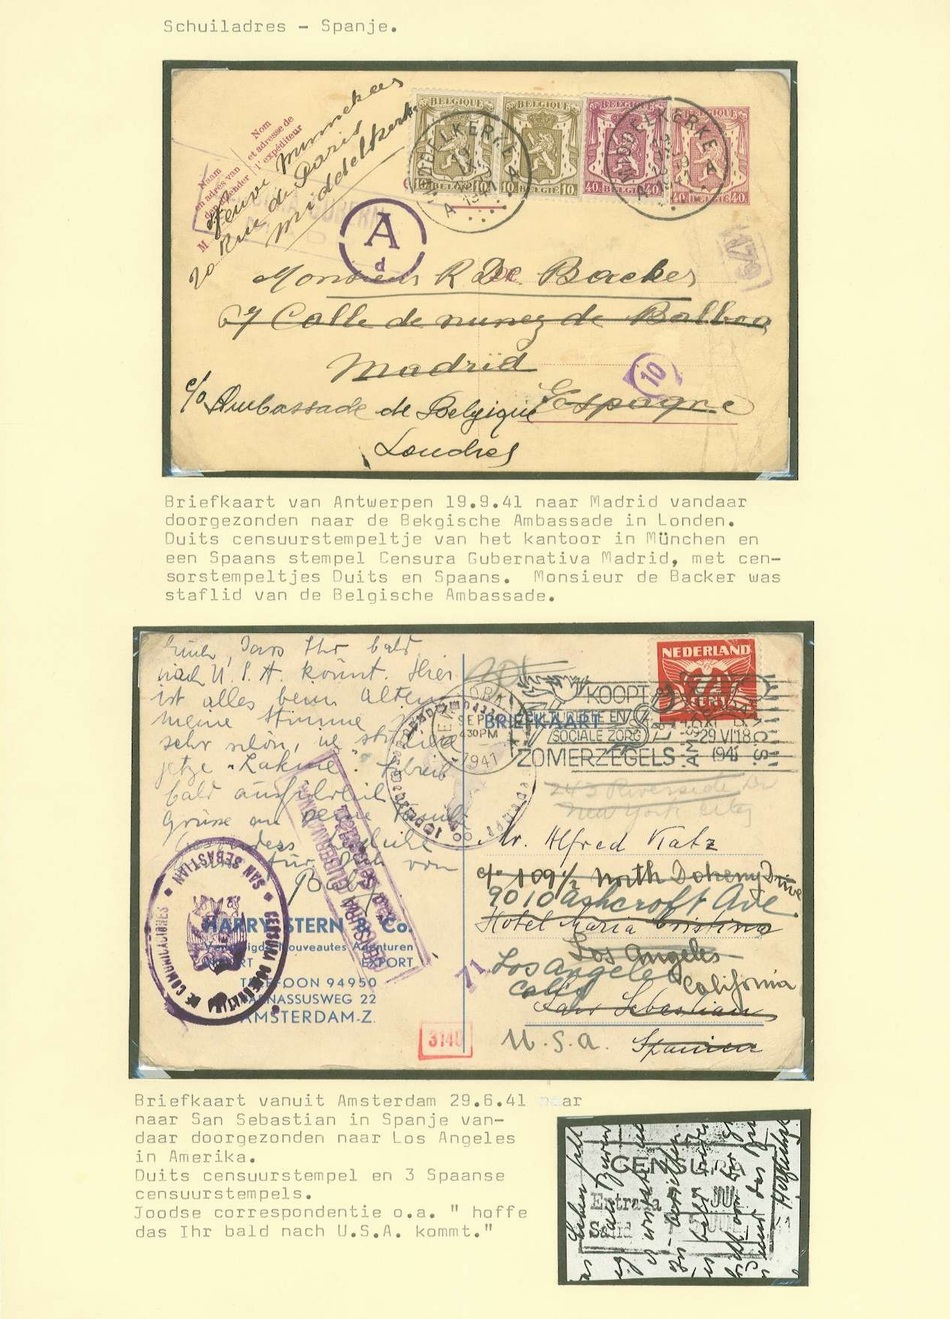 Schuiladres - Spanje.
Nom
et adresse de
l'expéditeur
Naam
en adres van
den afzender
M
Veuve Munnekees
20 Rue de Paris
Middelkerke
BELGIQUE
BELGIE
10
BELGIQUE
10 BELGIE 10
BELGIQUE
40 BELGIE 40
40
MIDDELKERKE
A A
MIDDELKERKE
A A
A
d
179
Monsieur R De Backer
67 Calle de nunez de Balboa
Madrid
10
Espagne
c/o Ambassade de Belgique
Londres
Briefkaart van Antwerpen 19.9.41 naar Madrid vandaar
doorgezonden naar de Bekgische Ambassade in Londen.
Duits censuurstempeltje van het kantoor in München en
een Spaans stempel Censura Gubernativa Madrid, met cen-
sorstempeltjes Duits en Spaans. Monsieur de Backer was
staflid van de Belgische Ambassade.
Euch, dass Ihr bald
nach U.S.A. kommt. Hier
ist alles beim Alten
meine Stimme
sehr schön, ich studiere
jetzt "Lakmé". Schreib
bald ausführlich
Grüsse an
für Dich von
NEDERLAND
7½
CENT
BRIEFKAART
KOOPT
CULTURELE EN
SOCIALE ZORG
ZOMERZEGELS
29 VI 18
1941
SEP
430PM
1941
243 Riverside Dr
New York City
Mr. Alfred Katz
c/o 109½ North Doheny Drive
9010 Ashcroft Ave.
Hotel Maria Cristina
Los Angeles
Los Angeles
California
Calif
San Sebastian
U.S.A.
Spanien
SAN SEBASTIAN
CENSURA GUBERNATIVA DE COMUNICACIONES
CENSURA GUBERNATIVA
HARRY STERN & Co.
Nouveautes Agenturen
IMPORT EXPORT
TELEFOON 94950
PARNASSUSWEG 22
AMSTERDAM-Z.
71
3140
Briefkaart vanuit Amsterdam 29.6.41 naar
naar San Sebastian in Spanje van-
daar doorgezonden naar Los Angeles
in Amerika.
Duits censuurstempel en 3 Spaanse
censuurstempels.
Joodse correspondentie o.a. " hoffe
das Ihr bald nach U.S.A. kommt."
CENSURA
Entrada JUL
Salid